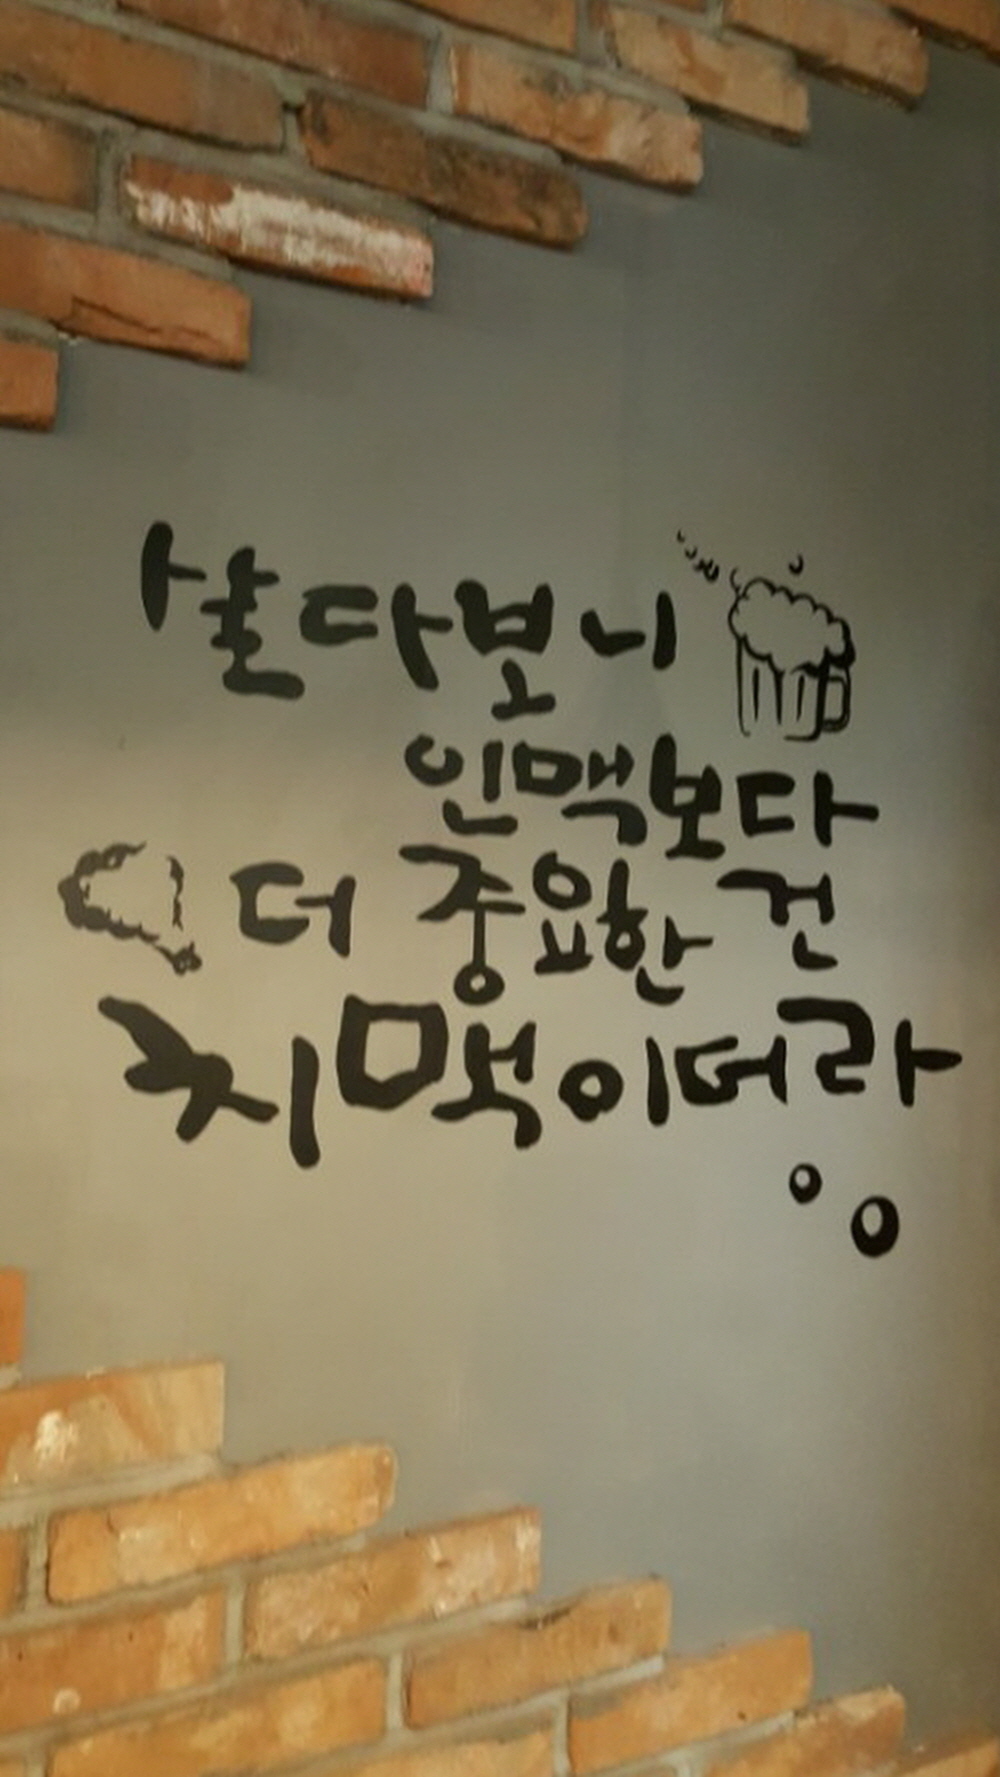 살다보니
인맥보다
더 중요한 건
치맥이더라